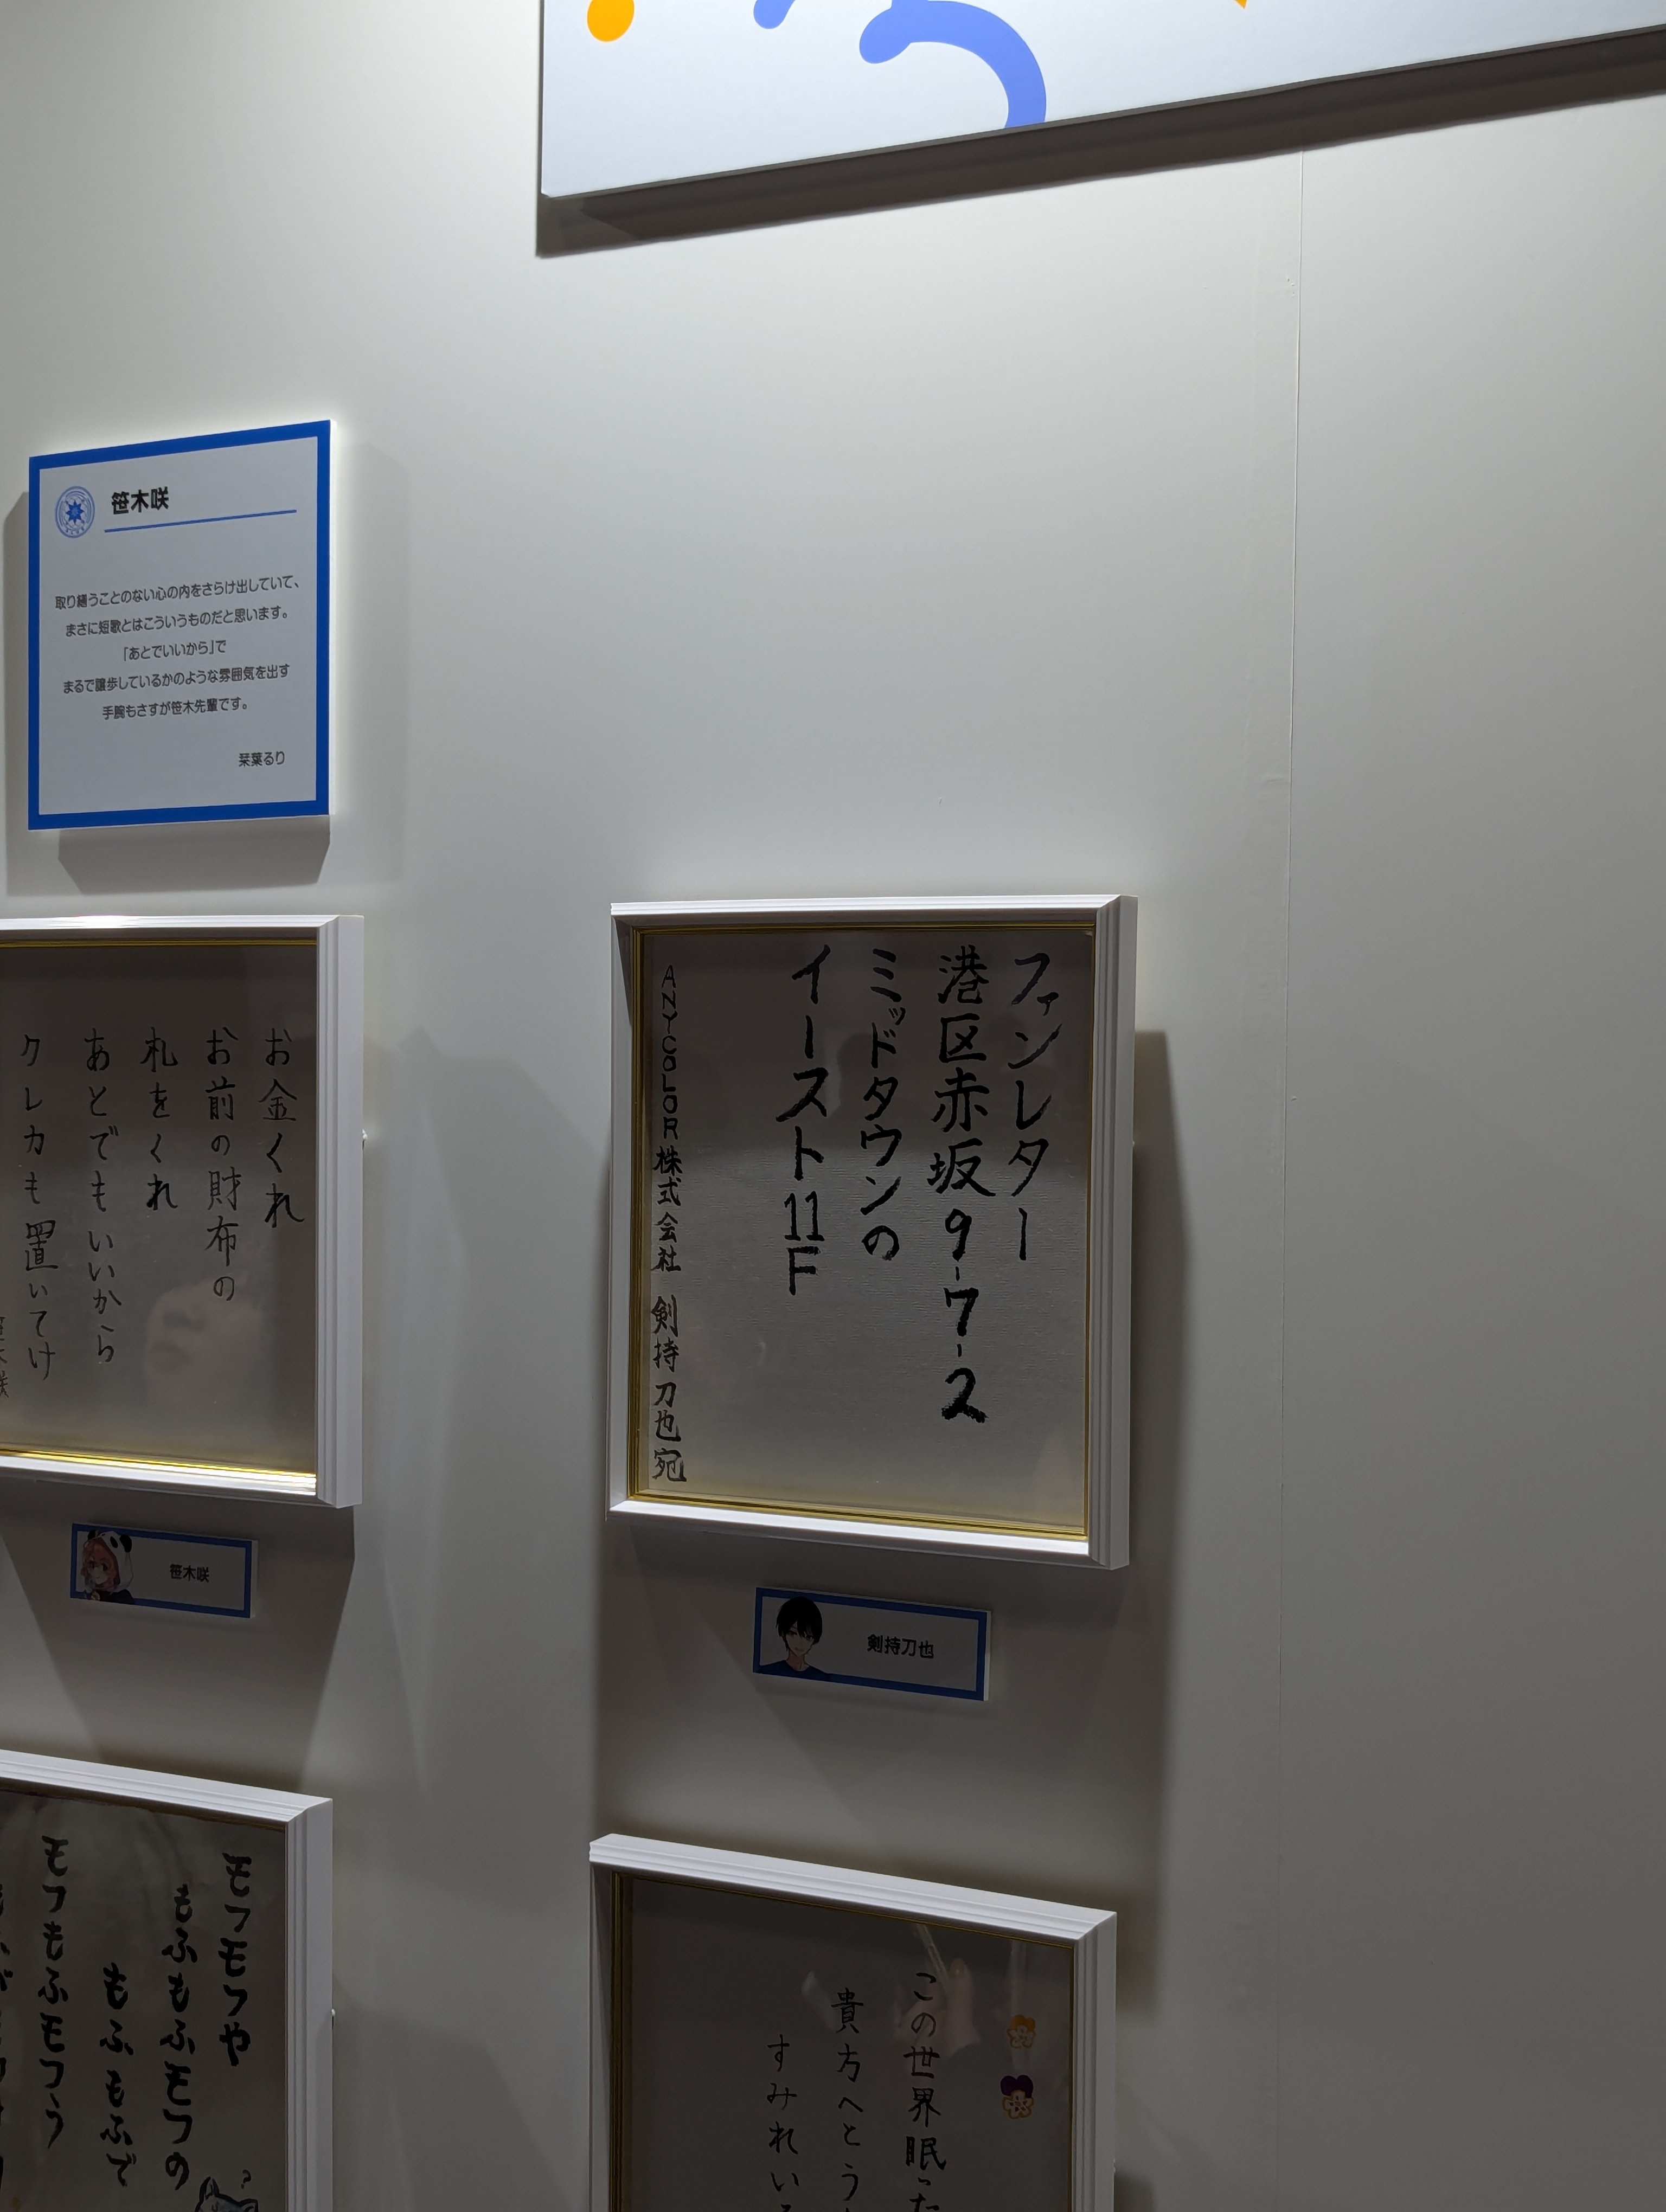 笹木咲
取り繕うことのない心の内をさらけ出していて、
まさに短歌とはこういうものだと思います。
「あとでいいから」で
まるで譲歩しているかのような雰囲気を出す
手腕もさすが笹木先輩です。
栞葉るり
お金くれ
お前の財布の
札をくれ
あとでもいいから
クレカも置いてけ
笹木咲
ファンレター
港区赤坂9-7-2
ミッドタウンの
イースト11F
ANYCOLOR株式会社 剣持刀也宛
剣持刀也
モフモフや
もふもふモフの
もふもふで
モフもふモフう
この世界眠った
貴方へとう
すみれいろ